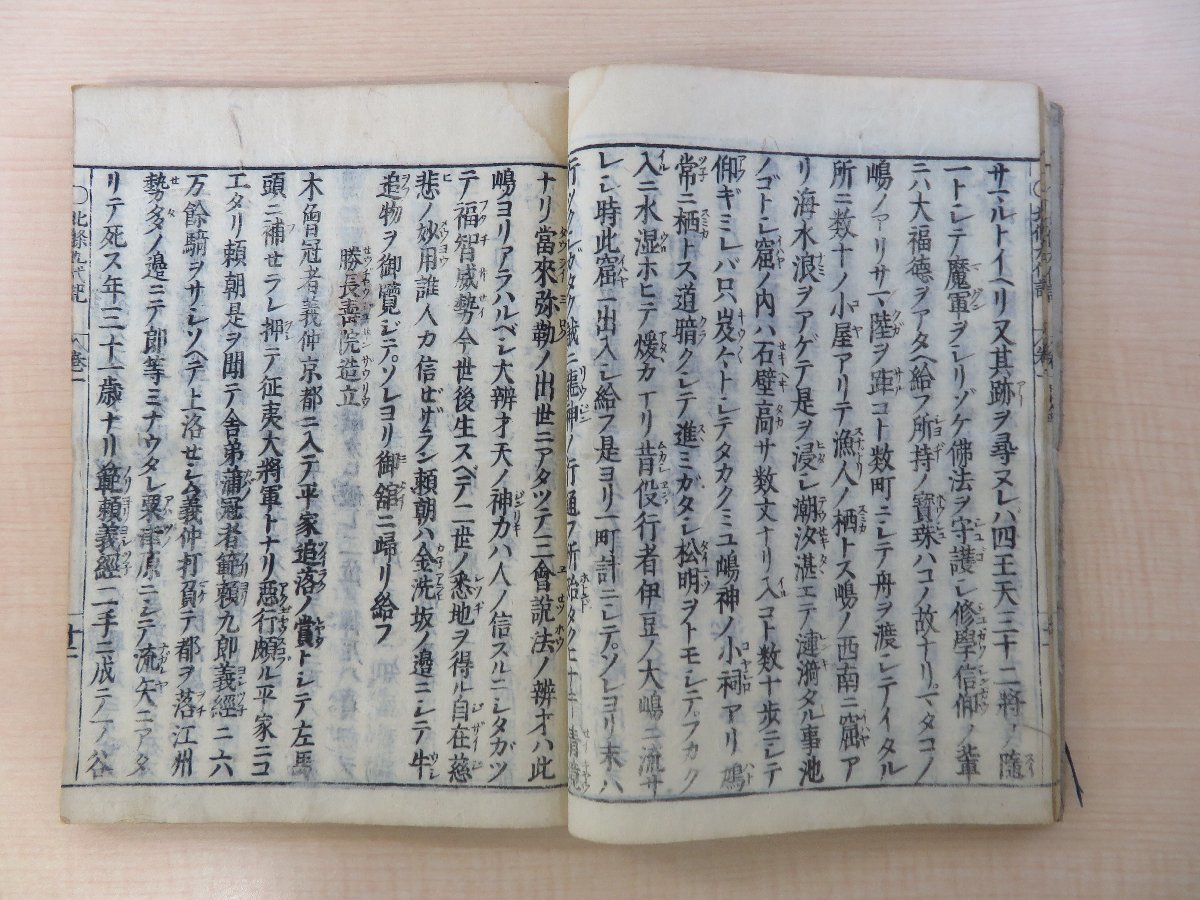 サマルトイヘリ又其跡ヲ尋ヌレバ四王天三十二將ノ隨
一トシテ魔軍ヲシリゾケ佛法ヲ守護シ修學信俏ノ輩
ニハ大福德ヲアタヘ給フ所持ノ寳珠ハコノ故ナリマタコノ
嶋ノアリサマ陸ヲ距コト数町ニシテ舟ヲ渡シテイタル
所ニ数十ノ小屋アリテ漁人ノ栖トス嶋ノ西南ニ窟ア
リ海水浪ヲアゲテ是ヲ浸シ潮汐湛エテ漣漪タル事池
ノゴトシ窟ノ内ハ石壁高サ数丈ナリ入コト数十歩ニシテ
仰ギミレバ只岌々トシテタカクミユ嶋神ノ小祠アリ鴿
常ニ栖トス道暗クシテ進ミガタシ松明ヲトモシテフカク
入ニ水湿ホヒテ煖カナリ昔役行者伊豆ノ大嶋ニ流サ
レシ時此窟ニ出入シ給フ是ヨリ一町計ニシテソレヨリ末ハ
龍神ノ行通フ所
ナリ當來弥勒ノ出世ニアタツテ三會説法ノ辨才ハ此
嶋ヨリアラハルベシ大辨才天ノ神力ハ人ノ信スルニシタガツ
テ福智威勢今世後生スベテ二世ノ悉地ヲ得ル自在慈
悲ノ妙用誰人カ信ゼザラン頼朝ハ金洗坂ノ邊ニシテ牛
追物ヲ御覽ジテソレヨリ御舘ニ歸リ給フ
勝長壽院造立
木曾冠者義仲京都ニ入テ平家追落ノ賞トシテ左馬
頭ニ補セラレ押テ征夷大將軍トナリ惡行頗ル平家ニコ
エタリ頼朝是ヲ聞テ舎弟蒲冠者範頼九郎義經ニ六
万餘騎ヲサシソヘテ上洛セシム義仲打負テ都ヲ落江州
勢多ノ邊ニテ郎等ミナウタレ粟津原ニシテ流矢ニアタ
リテ死ス年三十一歳ナリ範頼義經二手ニ成テ一ノ谷
〇北條九代記 卷一 十二